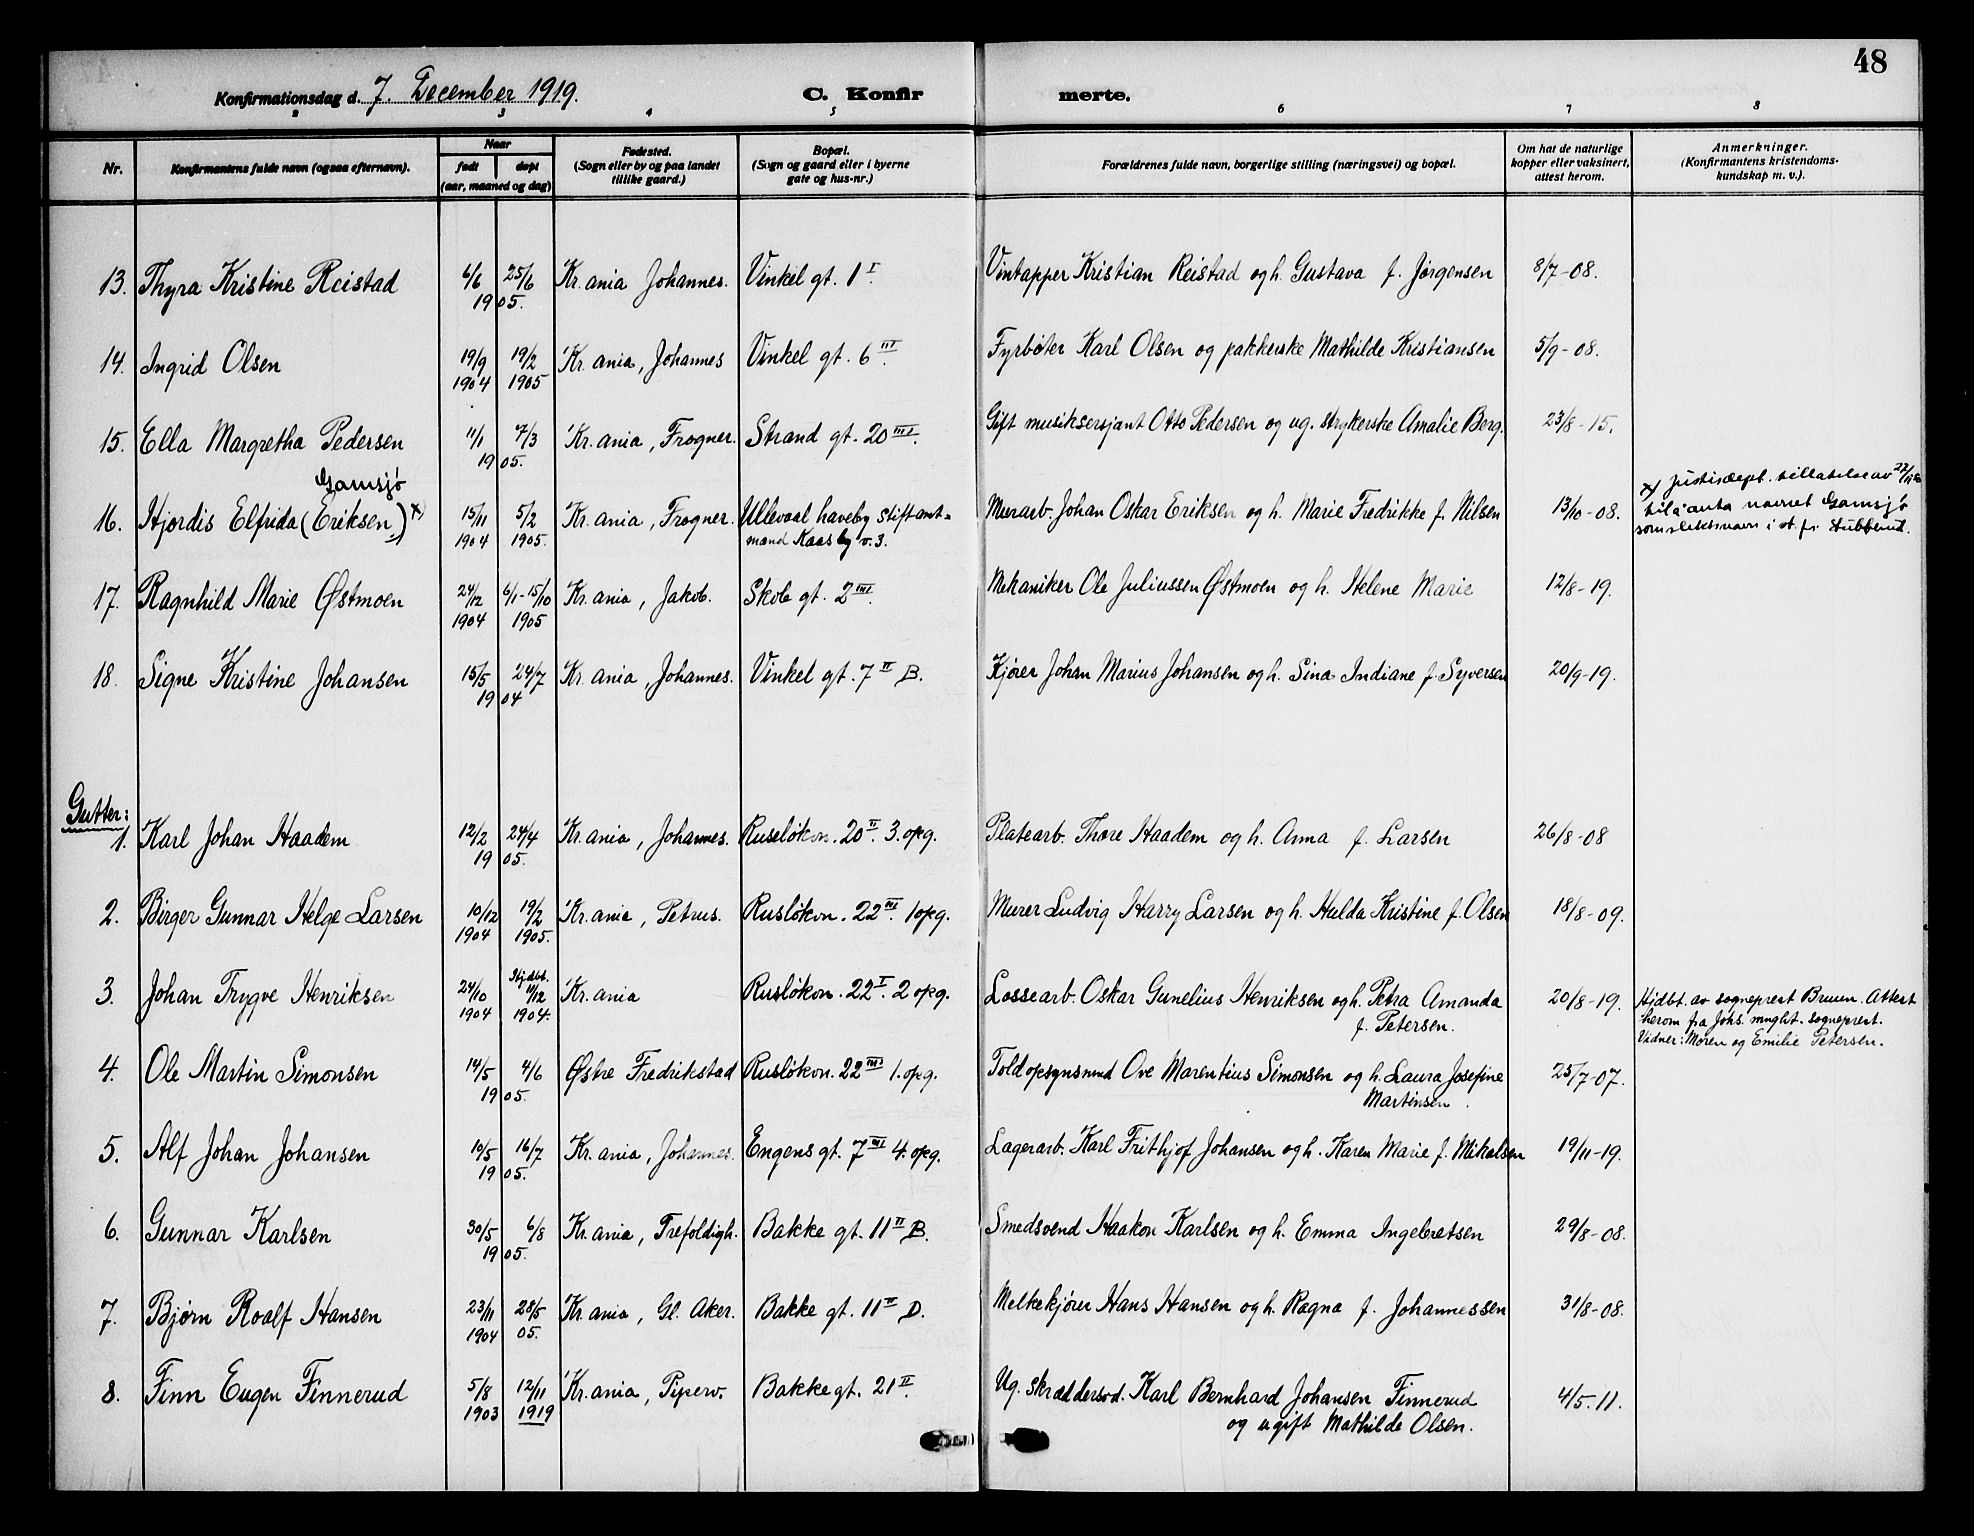 48
Konfirmationsdag d. 7. December 1919. C. Konfir merte.
2 3 4 5 6 7 8
Nr. Konfirmantens fulde navn (ogsaa efternavn). Naar født døpt (aar, maaned og dag) Fødested. (Sogn eller by og paa landet tillike gaard.) Bopæl. (Sogn og gaard eller i byerne gate og hus-nr.) Forældrenes fulde navn, borgerlige stilling (næringsvei) og bopæl. Om hat de naturlige kopper eller vaksinert, attest herom. Anmerkninger. (Konfirmantens kristendoms- kundskap m. v.).
13. Thyra Kristine Reistad 6/6 25/6 Kr.ania Johannes. Vinkel gt. 1 I Vintapper Kristian Reistad og h. Gustava f. Jørgensen 8/7-08.
1905.
14. Ingrid Olsen 19/9 19/2 Kr.ania, Johannes Vinkel gt. 6 III. Fyrbøter Karl Olsen og pakkerske Mathilde Kristiansen 5/9-08.
1904 1905
15. Ella Margretha Pedersen 11/1 7/3 Kr.ania, Frogner. Strand gt. 20 III. Gift musiksersjant Otto Pedersen og ug. strykerske Amalie Berg. 23/8-15.
1905.
Gamsjø
16. Hjordis Elfrida (Eriksen.) x) 15/11 5/2 Kr.ania, Frogner. Ullevaal haveby Stiftamt- Murarb. Johan Oskar Eriksen og h. Marie Fredrikke f. Nilsen 13/10-08. x) Justisdept. tillatelse av
1904 1905. mand Kaas by v. 3. til å anta navnet Gamsjø
som slektsnavn i st. f.
17. Ragnhild Marie Østmoen 24/12 6/1-15/10 Kr.ania, Jakob. Skole gt. 2 III. Mekaniker Ole Juliussen Østmoen og h. Helene Marie 12/8-19.
1904 1905
18. Signe Kristine Johansen 15/5 24/7 Kr.ania, Johannes. Vinkel gt. 7 II B. Kjører Johan Marius Johansen og h. Sina Indiane f. Syversen 20/9-19.
1904
Gutter:
1. Karl Johan Haadem 12/2 24/4 Kr.ania, Johannes. Ruseløkvn. 20 II. 3. opg. Platearb. Thore Haadem og h. Anna f. Larsen 26/8-08
1905.
2. Birger Gunnar Helge Larsen 10/12 19/2 Kr.ania, Petrus. Rusløkvn. 22 III. 1 opg. Murer Ludvig Harry Larsen og h. Hulda Kristine f. Olsen 18/8-09.
1904 1905.
Hjdbt.
3. Johan Trygve Henriksen 24/10 11/12 Kr.ania Rusløkvn. 22 I. 2 opg. Lossearb. Oskar Gunelius Henriksen og h. Petra Amanda 20/8-19. Hjdbt. av sogneprest Bruun. Attest
1904 1904. f. Petersen. herom fra Johs. mnght. sogneprest.
Vidner: Moren og Emilie Petersen.
4. Ole Martin Simonsen 14/5 4/6 Østre Fredrikstad Rusløkvn. 22 III 1. opg. Toldopsynsmnd Ove Marentius Simonsen og h. Laura Josefine 25/7-07.
1905. Martinsen.
5. Alf Johan Johansen 10/5 16/7 Kr.ania, Johannes. Engens gt. 7 III 4. opg. Lagerarb. Karl Frithjof Johansen og h. Karen Marie f. Mikalsen 19/11-19.
1905.
6. Gunnar Karlsen 30/5 6/8 Kr.ania, Trefoldigh. Bakke gt. 11 II B. Smedsvend Haakon Karlsen og h. Emma Ingebretsen 29/8-08.
1905.
7. Bjørn Roalf Hansen 23/11 28/5 Kr.ania, Gl. Aker. Bakke gt. 11 II D. Melkekjører Hans Hansen og h. Ragna f. Johannessen 31/8-08.
1904 05.
8. Finn Eugen Finnerud 5/8 12/11 Kr.ania, Piperv. Bakke gt. 21 II. Ug. skræddersvd. Karl Bernhard Johansen Finnerud 4/5.11.
1903 1919 og ugift Mathilde Olsen.